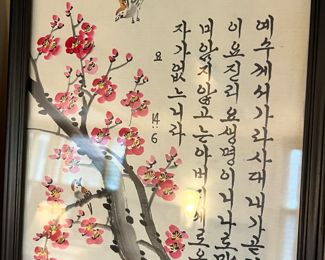 예수께서가라사대내가곧
이요진리요생명이니나로말
미암지않고는아버지께로올
자가없느니라
요 14:6